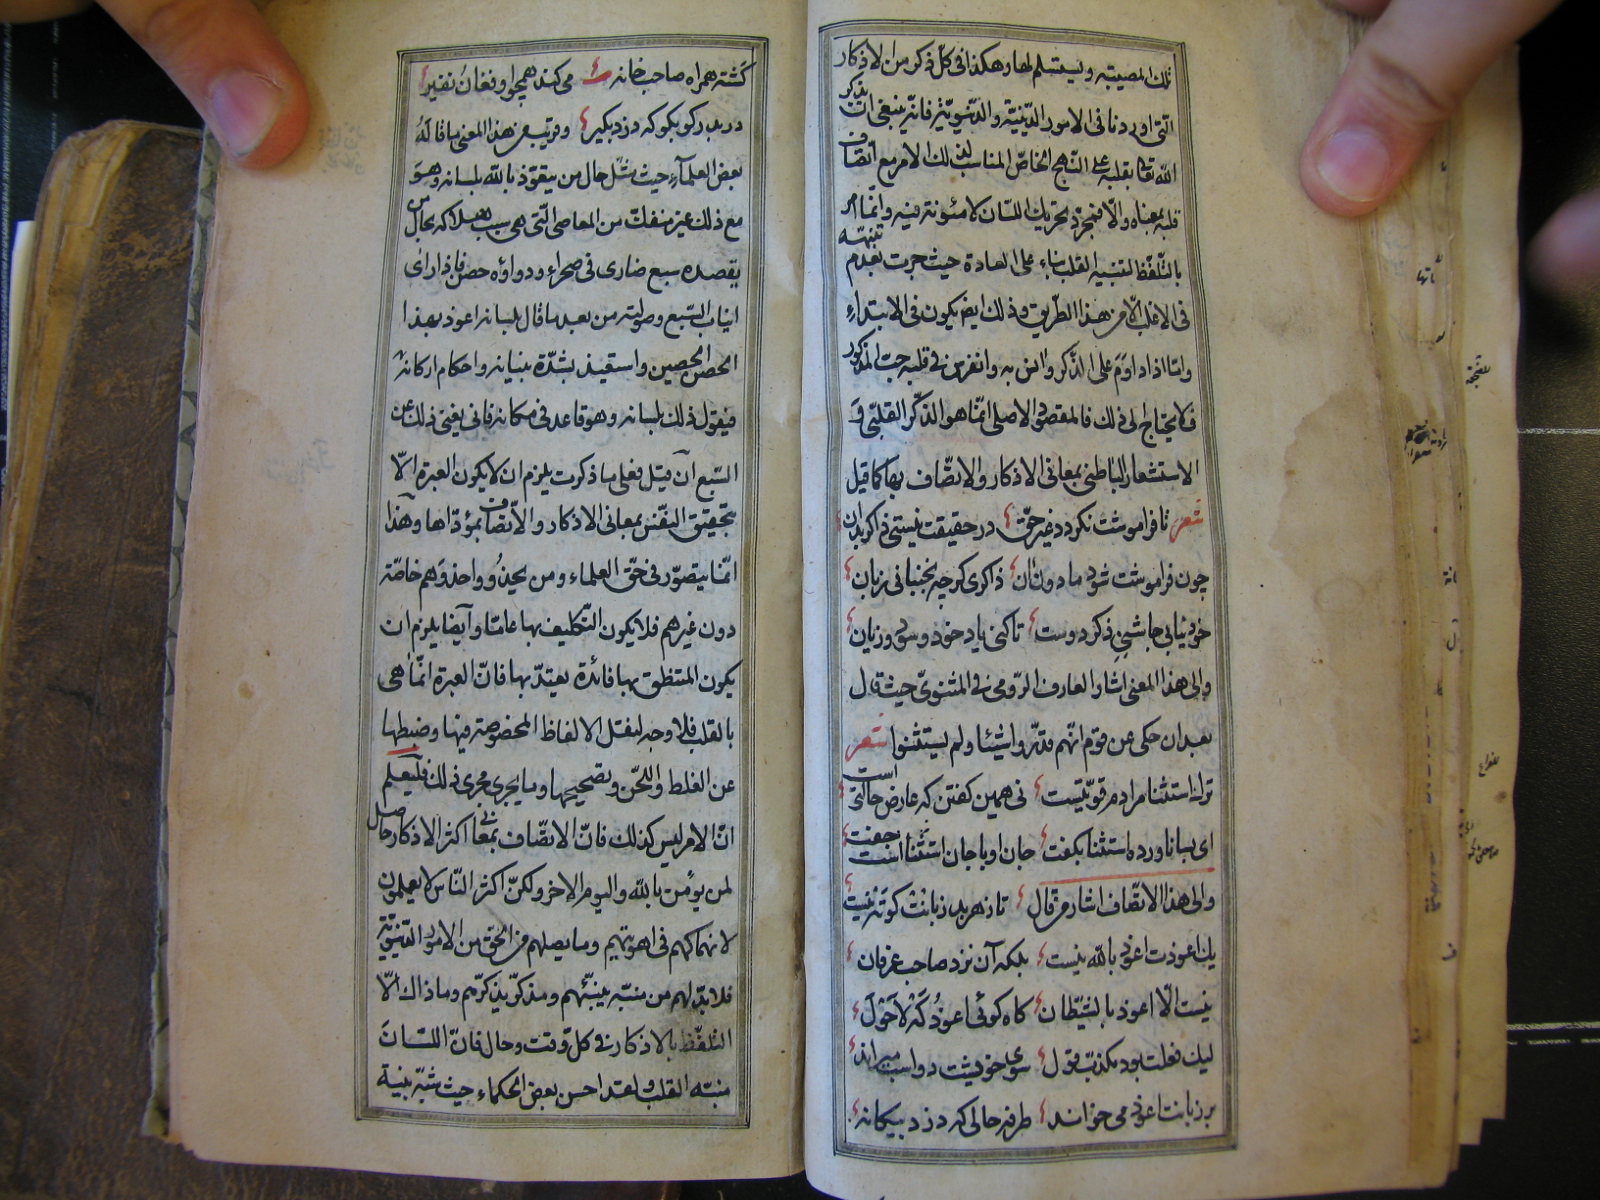 تلك المصيبة ويستسلم لها وهكذا فى كل ذكر من الاذكار
التى اوردنا فى الامور الدينية والدنيوية فانه ينبغى ان يذكر
الله تعا بقلبه على النهج الخاص المناسب لذلك الامر مع اتصاف
قلبه بمعناه والا فمجرد تحريك اللسان لا مئونة فيه وانما امر
بالتلفظ لتنبيه القلب بناء على العادة حيث جرت بعدم تنبهه
فى الاغلب الا من هذا الطريق وذلك ايض يكون فى الابتداء
واما اذا داوم على الذكر وانس به وانغرس فى قلبه حب المذكور
فلا يحتاج الى ذلك فالمقصود الاصلى انما هو الذكر القلبى و
الاستشعار الباطنى بمعانى الاذكار والاتصاف بها كما قيل
شعر تا فراموشت نكردد غير حق در حقيقت نيستى ذاكر بدان
چون فراموشت شود ما دون آن ذاكرى كرچه نجنبانى زبان
خود نيابى چاشنئ ذكر دوست تا كنى ياد خود وسود وزيان
والى هذا المعنى اشار العارف الرومى فى المثنوى حيث قال
بعد ان حكى عن قوم انهم قدروا شيئا ولم يستثنوا شعر
ترك استثنا مرادم قوتيست نى همين كفتن كه عارض حالتى است
اى بسا ناورده استثنا بكفت جان او با جان استثنا است جفت
والى هذا الاتصاف اشار من قال تا ز هر بد زبانت كوته نيست
يك اعوذت اعوذ بالله نيست بلكه آن نزد صاحب عرفان
نيست الا اعوذ بالشيطان كاه كوئى اعوذ كه لا حول
ليك فعلت بود مكذب قول سوى خويشت دو اسبه ميراند
بر زبانت اعوذ مى خواند طرفه حالى كه دزد بيكانه
كشته همراه صاحب خانه مى كند همچو او فغان نفير
در بدر كو بكو كه دزد بكير وقريب من هذا المعنى ما قاله
بعض العلماء حيث مثل حال من يتعوذ بالله بلسانه وهو
مع ذلك غير منفك من المعاصى التى هى سبب هلاكه بحال من
يقصده سبع ضارى فى صحراء ودواؤه حصن فاذا راى
انياب السبع وصولته من بعد ما قال بلسانه اعوذ بهذا
الحصن الحصين واستعيذ بشدة بنيانه واحكام اركانه
فيقول ذلك بلسانه وهو قاعد فى مكانه فانى يغنى ذلك عن
السبع ان قيل فعلى ما ذكرت يلزم ان لا يكون العبرة الا
بتحقيق النفس بمعانى الاذكار والاتصاف بمؤداها وهذا
انما يتصور فى حق العلماء ومن يحذو واحذوهم خاصة
دون غيرهم فلا يكون التكليف بها عاما وايضا يلزم ان
يكون المتنطق بها فائدة يعتد بها فان العبرة انما هى
بالقلب فلا وجه لنقل الالفاظ المخصوصة فيها وضبطها
عن الغلط واللحن وتصحيحها وما يجرى مجرى ذلك فليعلم
ان الامر ليس كذلك فان الاتصاف بمعانى اكثر الاذكار حاصل
لمن يؤمن بالله واليوم الاخر ولكن اكثر الناس لا يعلمون
لانهماكهم فى اهويتهم وما يصلهم من الحق من الامور الدنيوية
فلا بد لهم من منبه ينبئهم ومذكر يذكرهم وما ذاك الا
التلفظ بالاذكار فى كل وقت وحال فان اللسان
منبه القلب ولقد احسن بعض الحكماء حيث شبه بنية